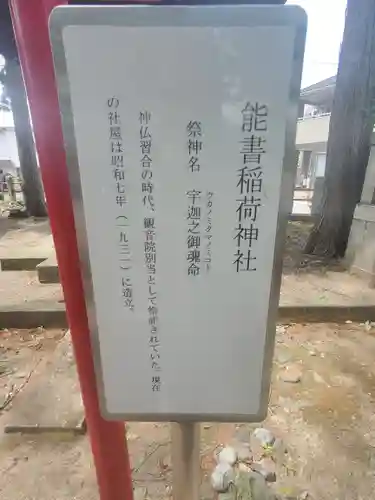 能書稲荷神社
ウカノミタマノミコト
祭神名 宇迦之御魂命
神仏習合の時代、観音院別当として惨祀されていた。現在
の社屋は昭和七年(一九三二)に造立。